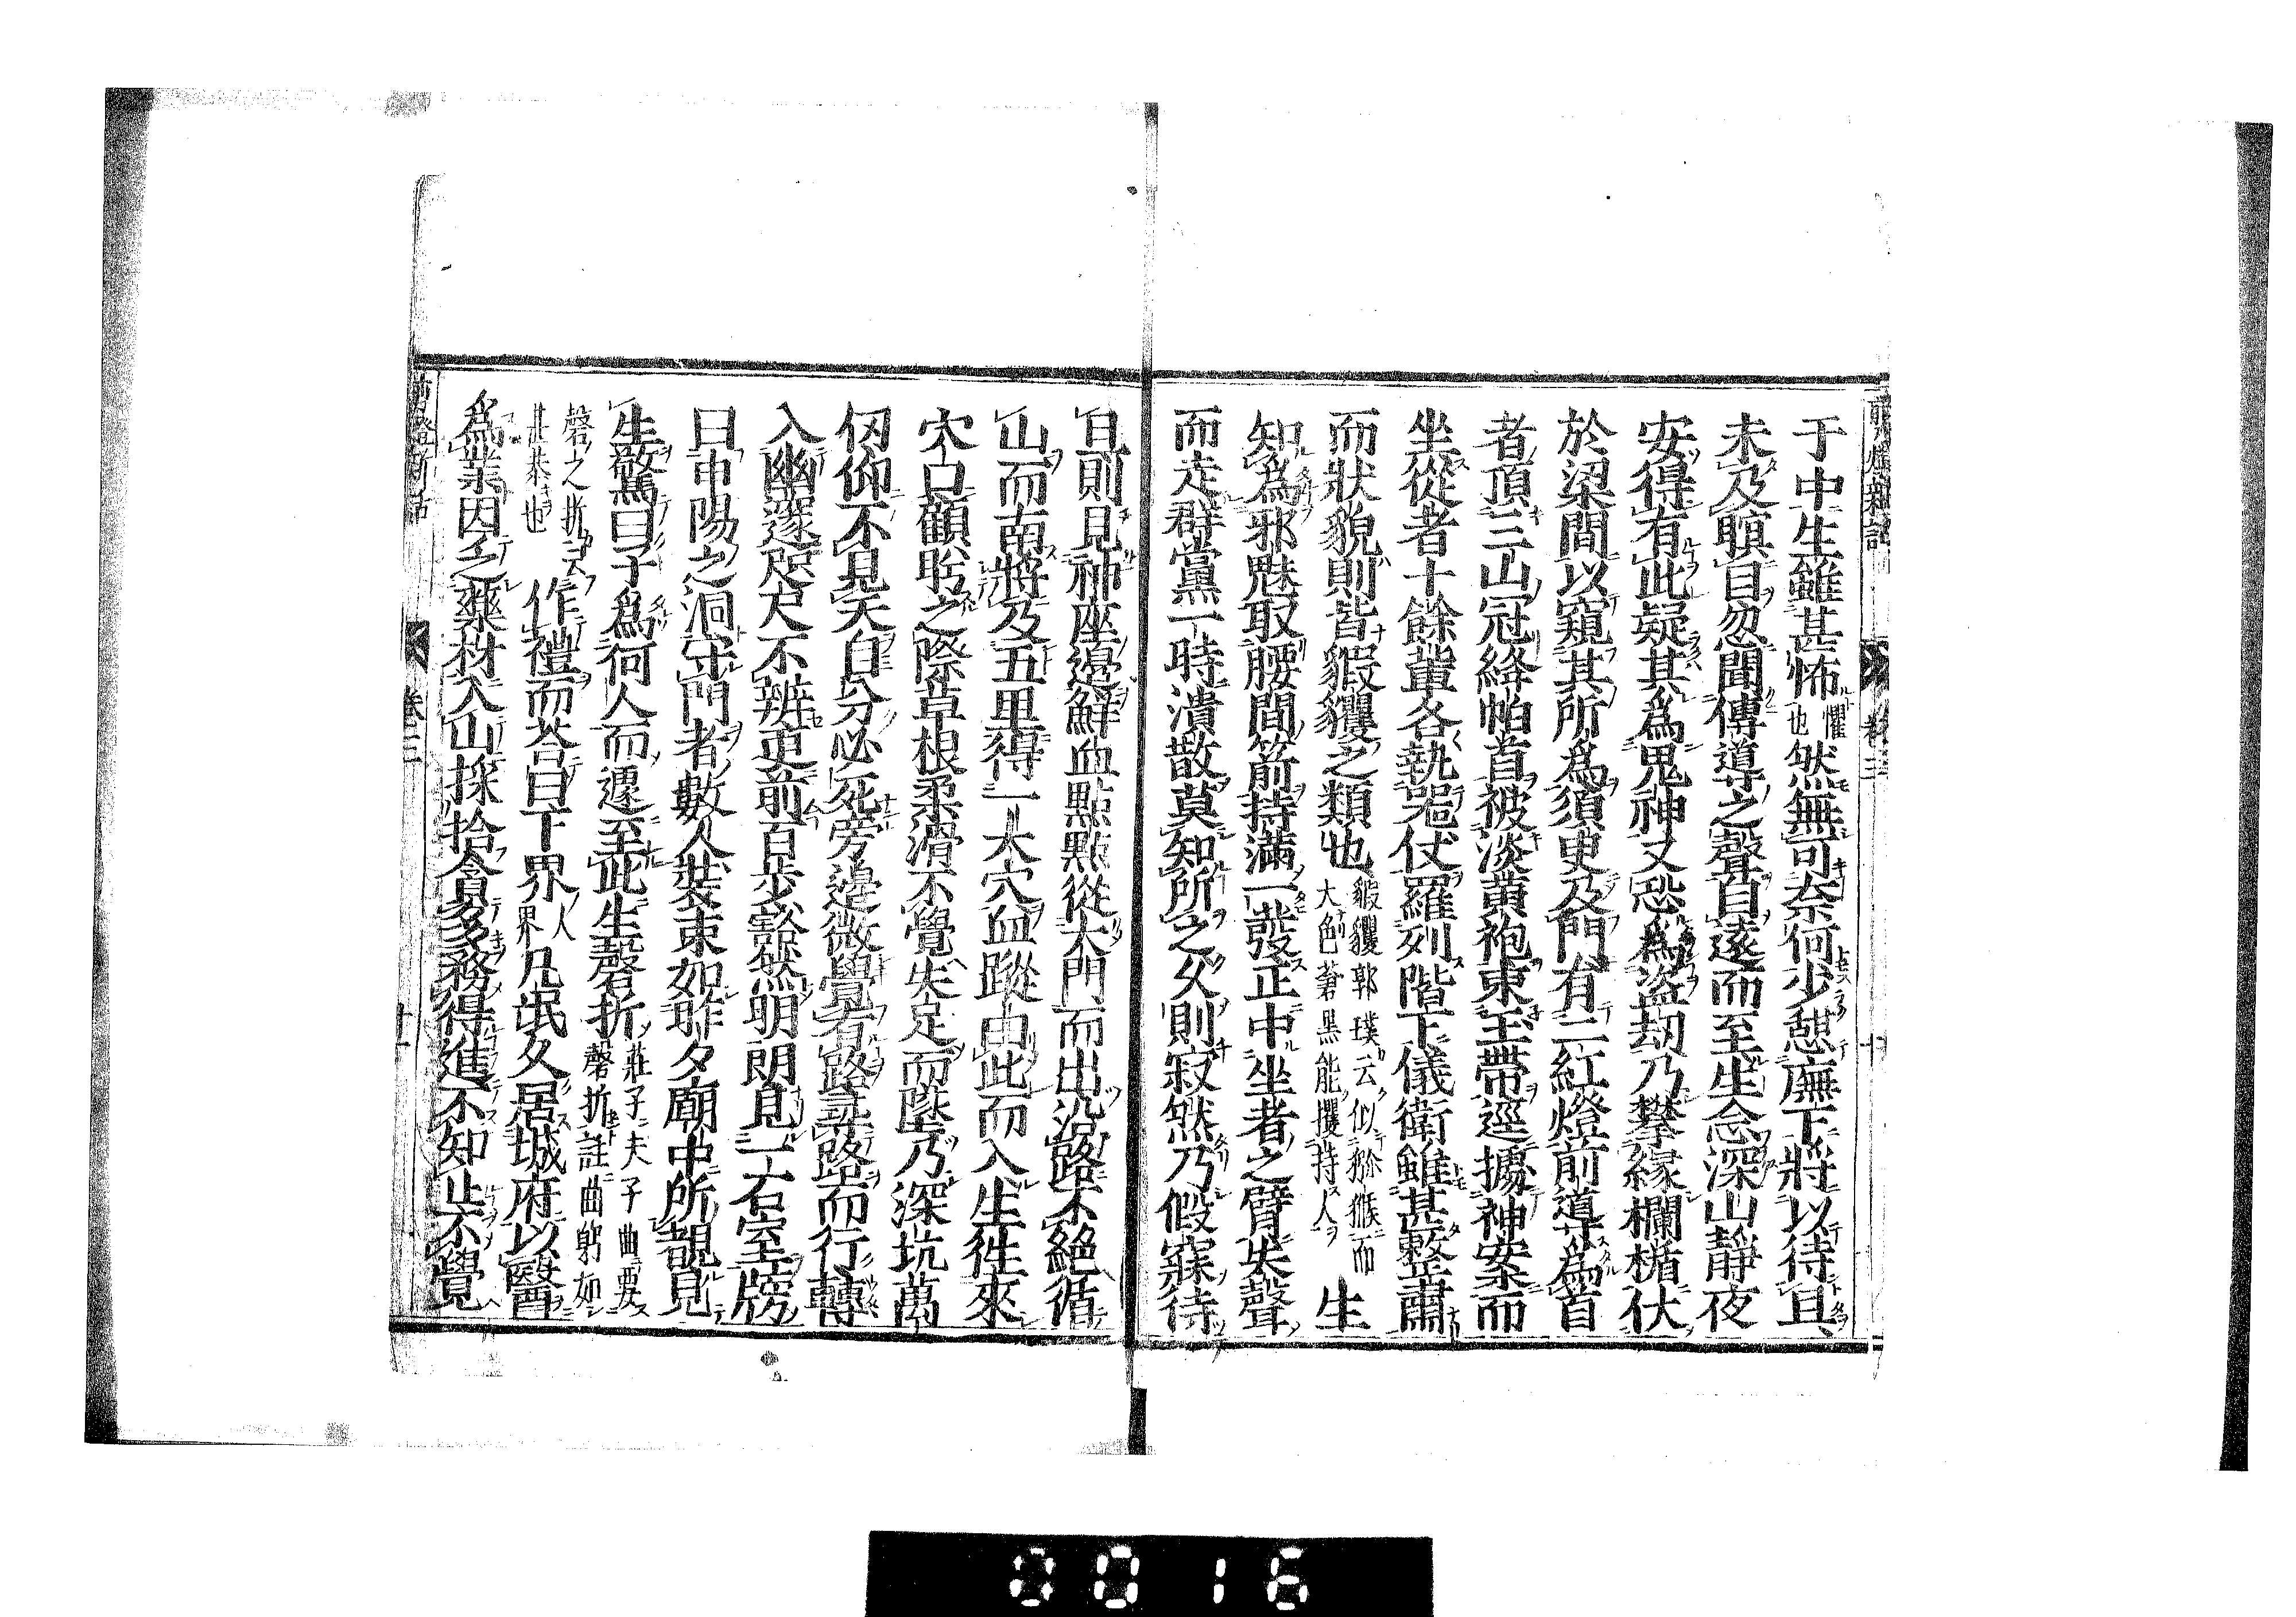 于中生雖甚怖懼也然無可奈何少憇廡下將以待旦
未及瞑目忽聞傳導之聲自遠而至生念深山靜夜
安得有此疑其爲鬼神又恐爲盗劫乃攀緣欄楯伏
於梁間以窺其所爲須臾及門有二紅燈前導爲首
者頂三山冠絳帕首被淡黄袍束玉帶逕據神案而
坐從者十餘輩各執噐仗羅列階下儀衛雖甚整肅
而狀貌則皆豭玃之類也豭玃郭璞云似獼猴而大色蒼黒能攫持人生
知爲邪魅取腰間箭持滿一發正中坐者之臂失聲
而走群黨一時潰散莫知所之久則寂然乃假寐待
旦則見神座邉鮮血點點從大門而出沿路不絕循
山而南將及五里得一大穴血蹤由此而入生徃來
穴口顧盻之際草根柔滑不覺失足而墜乃深坑萬
仭仰不見天自分必死旁邉微覺有路尋路而行轉
入幽邃咫尺不辨更前百步豁然明朗見一石室牓
曰申陽之洞守門者數人装束如昨夕廟中所覩見
生驚曰子爲何人而遽至此生磬折莊子夫子曲要磬折註曲躬如
磬之折云甚恭也作禮而荅曰下界人界凡氓久居城府以醫
爲業因乏藥材入山採拾貪多務得進不知止不覺
卷三
十
0016